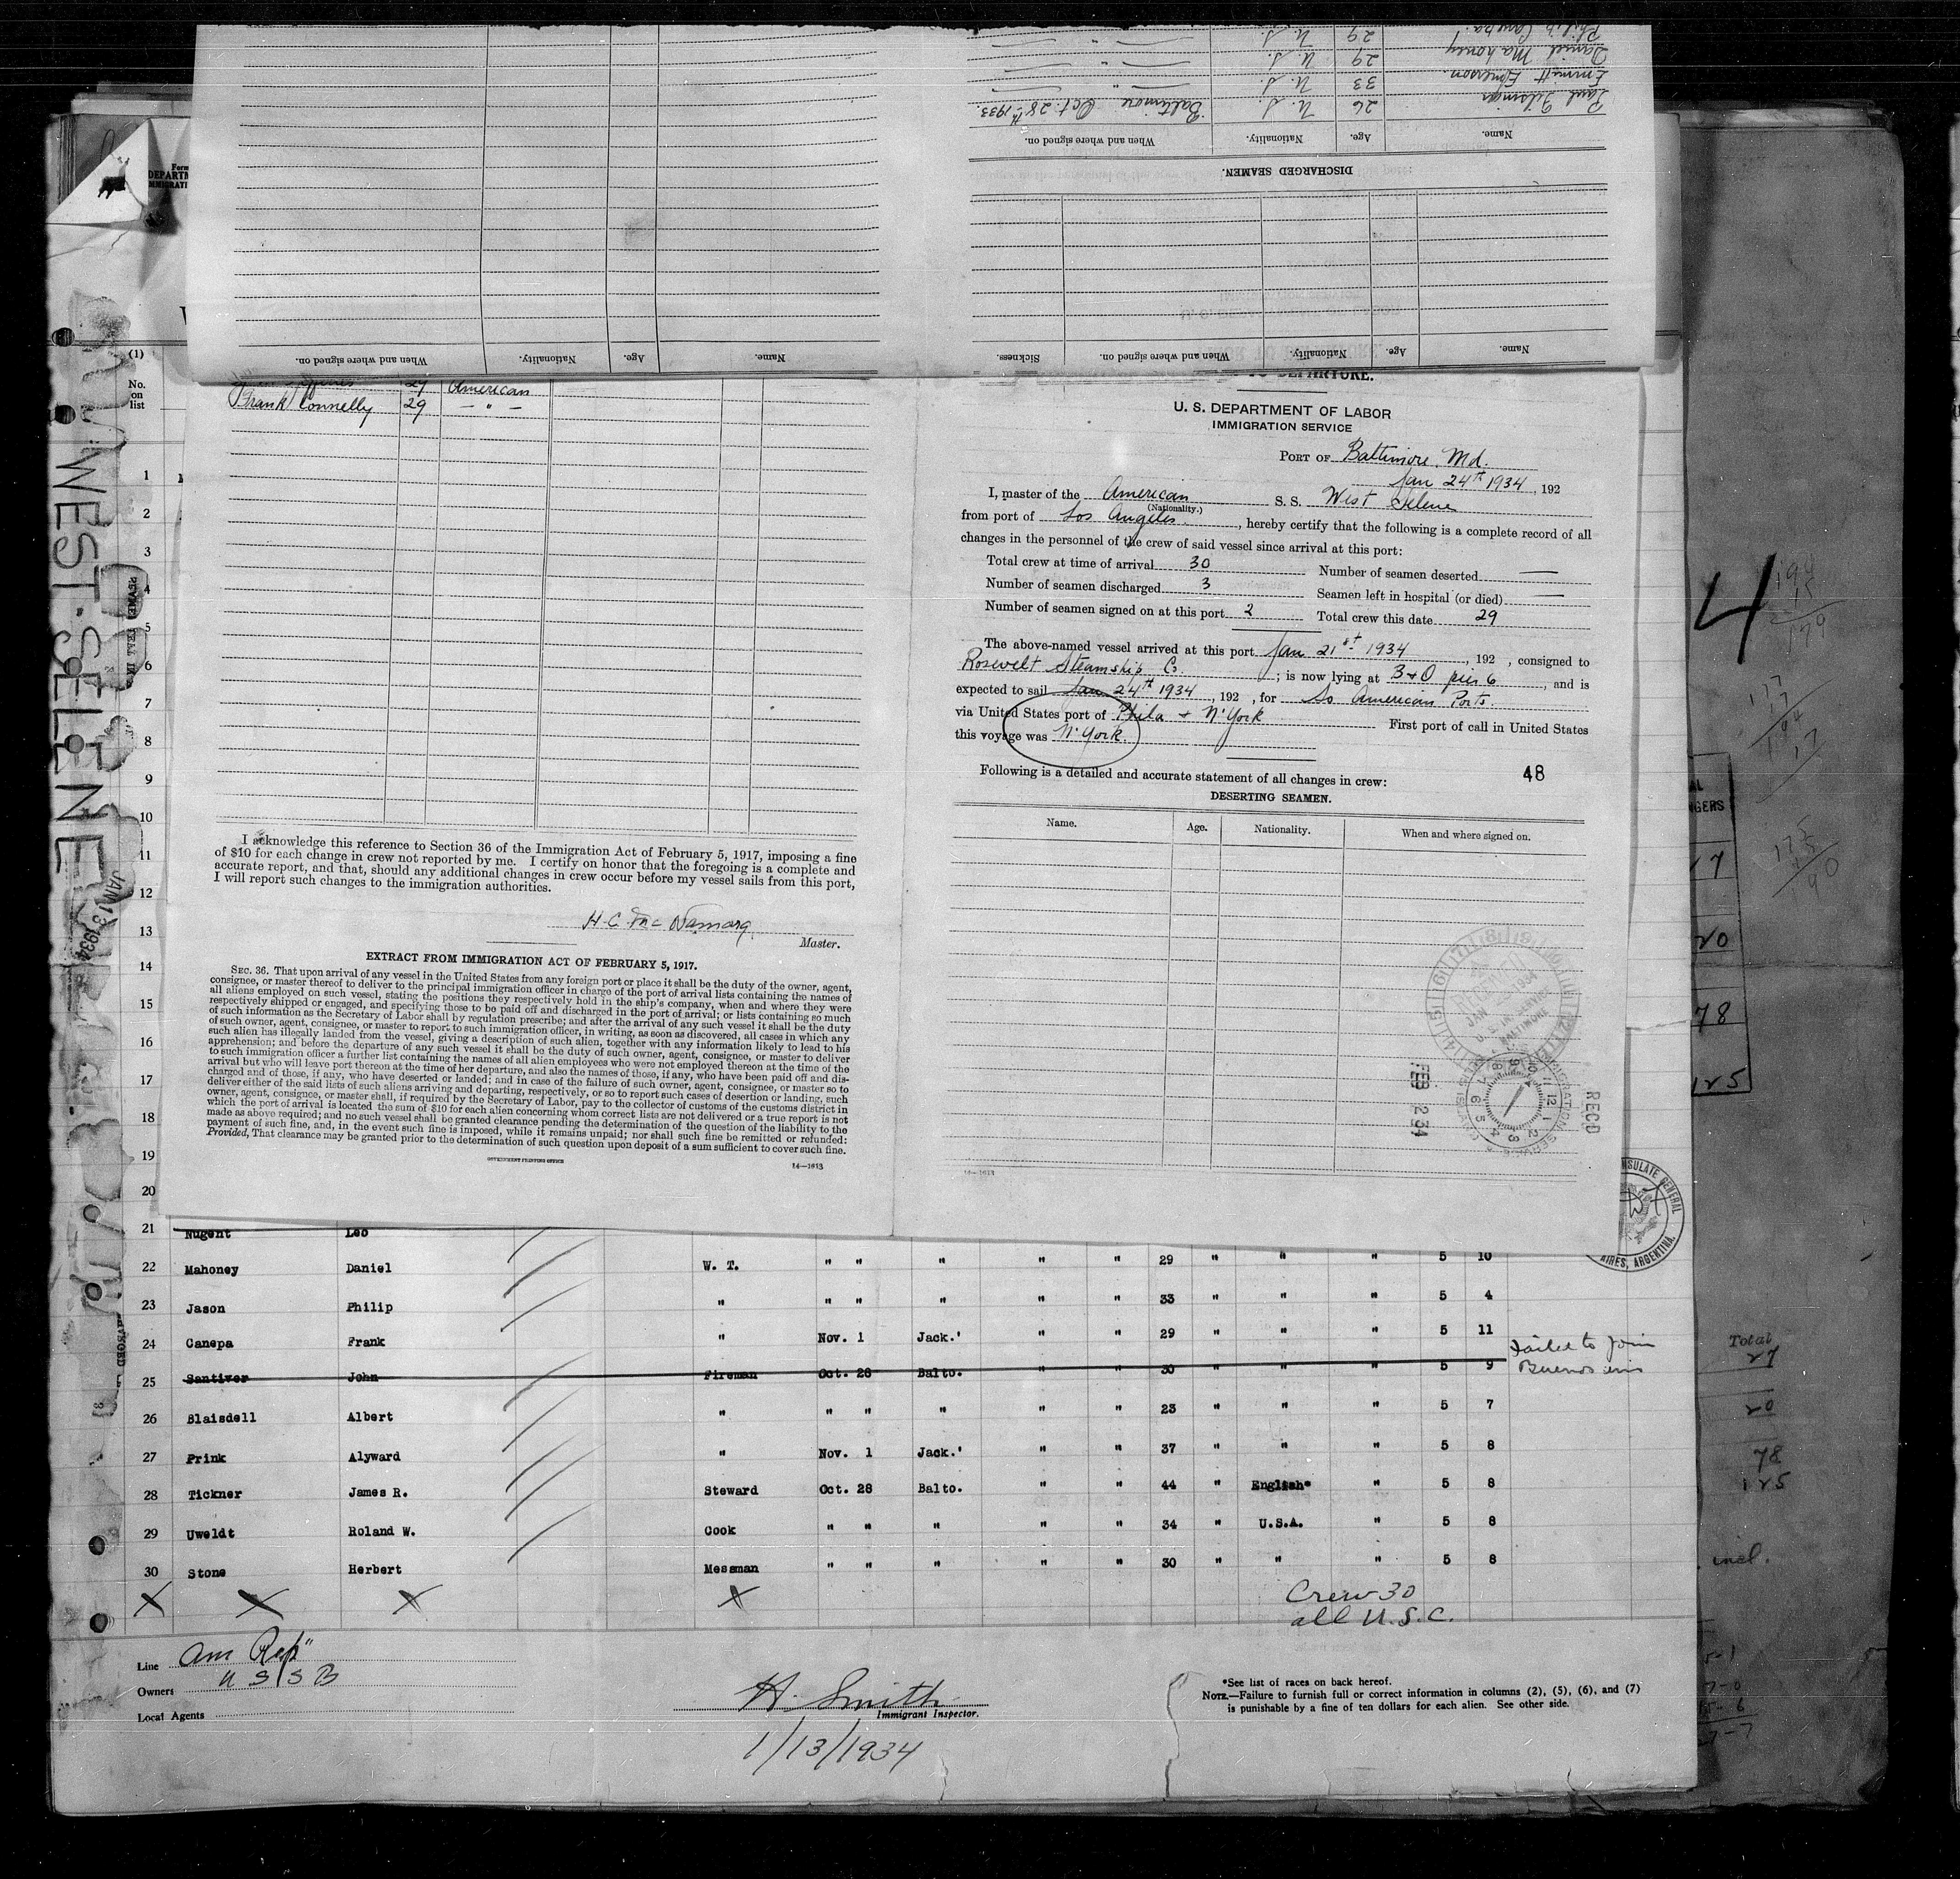 Philip Canepa. 29 U.S. — " —
Daniel Mahoney 29 U.S. — " —
Emmett Emerson. 33 U.S. — " —
Paul Filsinger 26 U.S. Baltimore Oct. 28th 1933
Name. Age. Nationality. When and where signed on.
DISCHARGED SEAMEN.
Name. Age. Nationality. When and where signed on. Sickness.
Name. Age. Nationality. When and where signed on.
(1)
No.
on
list
29 American
Frank Connelly 29 — " —
I acknowledge this reference to Section 36 of the Immigration Act of February 5, 1917, imposing a fine
of $10 for each change in crew not reported by me. I certify on honor that the foregoing is a complete and
accurate report, and that, should any additional changes in crew occur before my vessel sails from this port,
I will report such changes to the immigration authorities.
H. C. McNamara
Master.
EXTRACT FROM IMMIGRATION ACT OF FEBRUARY 5, 1917.
SEC. 36. That upon arrival of any vessel in the United States from any foreign port or place it shall be the duty of the owner, agent,
consignee, or master thereof to deliver to the principal immigration officer in charge of the port of arrival lists containing the names of
all aliens employed on such vessel, stating the positions they respectively hold in the ship's company, when and where they were
respectively shipped or engaged, and specifying those to be paid off and discharged in the port of arrival; or lists containing so much
of such information as the Secretary of Labor shall by regulation prescribe; and after the arrival of any such vessel it shall be the duty
of such owner, agent, consignee, or master to report to such immigration officer, in writing, as soon as discovered, all cases in which any
such alien has illegally landed from the vessel, giving a description of such alien, together with any information likely to lead to his
apprehension; and before the departure of any such vessel it shall be the duty of such owner, agent, consignee, or master to deliver
to such immigration officer a further list containing the names of all alien employees who were not employed thereon at the time of the
arrival but who will leave port thereon at the time of her departure, and also the names of those, if any, who have been paid off and dis-
charged and of those, if any, who have deserted or landed; and in case of the failure of such owner, agent, consignee, or master so to
deliver either of the said lists of such aliens arriving and departing, respectively, or so to report such cases of desertion or landing, such
owner, agent, consignee, or master shall, if required by the Secretary of Labor, pay to the collector of customs of the customs district in
which the port of arrival is located the sum of $10 for each alien concerning whom correct lists are not delivered or a true report is not
made as above required; and no such vessel shall be granted clearance pending the determination of the question of the liability to the
payment of such fine, and, in the event such fine is imposed, while it remains unpaid; nor shall such fine be remitted or refunded:
Provided, That clearance may be granted prior to the determination of such question upon deposit of a sum sufficient to cover such fine.
GOVERNMENT PRINTING OFFICE 14—1613
U. S. DEPARTMENT OF LABOR
IMMIGRATION SERVICE
PORT OF Baltimore, Md.
Jan 24th 1934, 192
I, master of the American S. S. West Selene
(Nationality.)
from port of Los Angeles, hereby certify that the following is a complete record of all
changes in the personnel of the crew of said vessel since arrival at this port:
Total crew at time of arrival 30 Number of seamen deserted —
Number of seamen discharged 3 Seamen left in hospital (or died) —
Number of seamen signed on at this port 2 Total crew this date 29
The above-named vessel arrived at this port Jan 21st 1934, 192 , consigned to
Rosevelt Steamship Co ; is now lying at B+O pier 6, and is
expected to sail Jan 24th 1934, 192 , for So American Ports.
via United States port of Phila + N'York First port of call in United States
this voyage was N'York.
Following is a detailed and accurate statement of all changes in crew: 48
DESERTING SEAMEN.
Name. Age. Nationality. When and where signed on.
14—1613
FEB 2 34
REC'D
WEST SELENE
JAN 13 1934
1
2
3
4
5
6
7
8
9
10
11
12
13
14
15
16
17
18
19
20
21 Nugent Leo
22 Mahoney Daniel W. T. " " " " " 29 " " " 5 10
23 Jason Philip " " " " " " 33 " " " 5 4
24 Canepa Frank " Nov. 1 Jack.' " " 29 " " " 5 11
25 Santiver John Fireman Oct. 28 Balto. " " 30 " " " 5 9 Failed to join
Buenos aires
26 Blaisdell Albert " " " " " " 23 " " " 5 7
27 Prink Alyward " Nov. 1 Jack.' " " 37 " " " 5 8
28 Tickner James R. Steward Oct. 28 Balto. " " 44 " English* " 5 8
29 Uweldt Roland W. Cook " " " " " 34 " U.S.A. " 5 8
30 Stone Herbert Messman " " " " " 30 " " " 5 8
Crew 30
all U.S.C.
Line Am Rep"
Owners U S S B
Local Agents
H. Smith
Immigrant Inspector.
1/13/1934
*See list of races on back hereof.
NOTE.—Failure to furnish full or correct information in columns (2), (5), (6), and (7)
is punishable by a fine of ten dollars for each alien. See other side.
4
Total
27
20
78
125
incl.